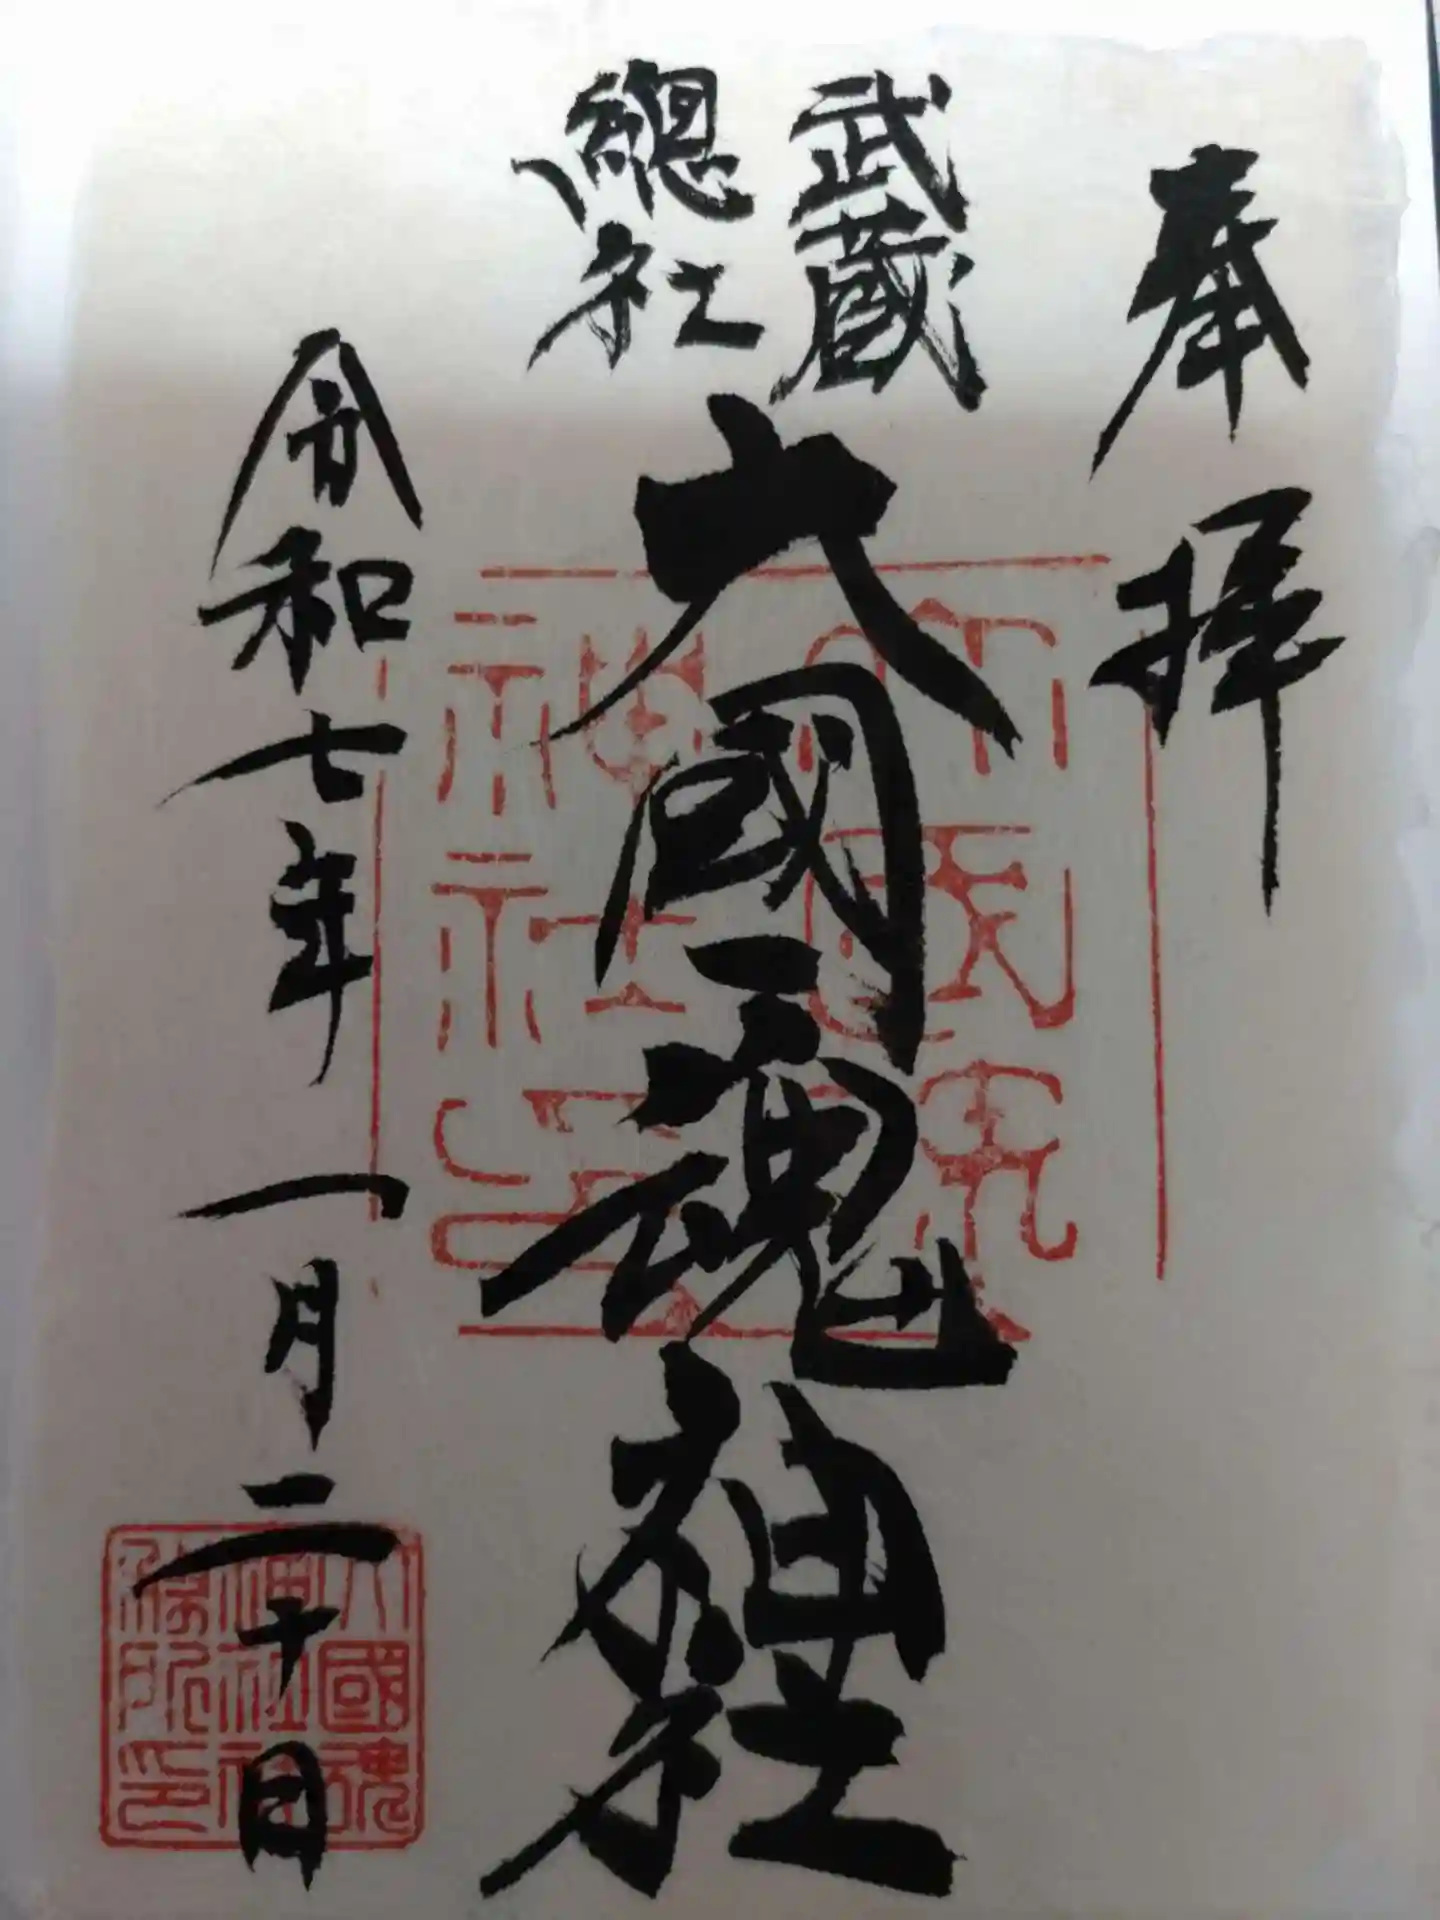 奉拝
武蔵
總社
大國魂神社
令和七年一月二十日
大國魂
神社
印
大國魂
神社社
務所印